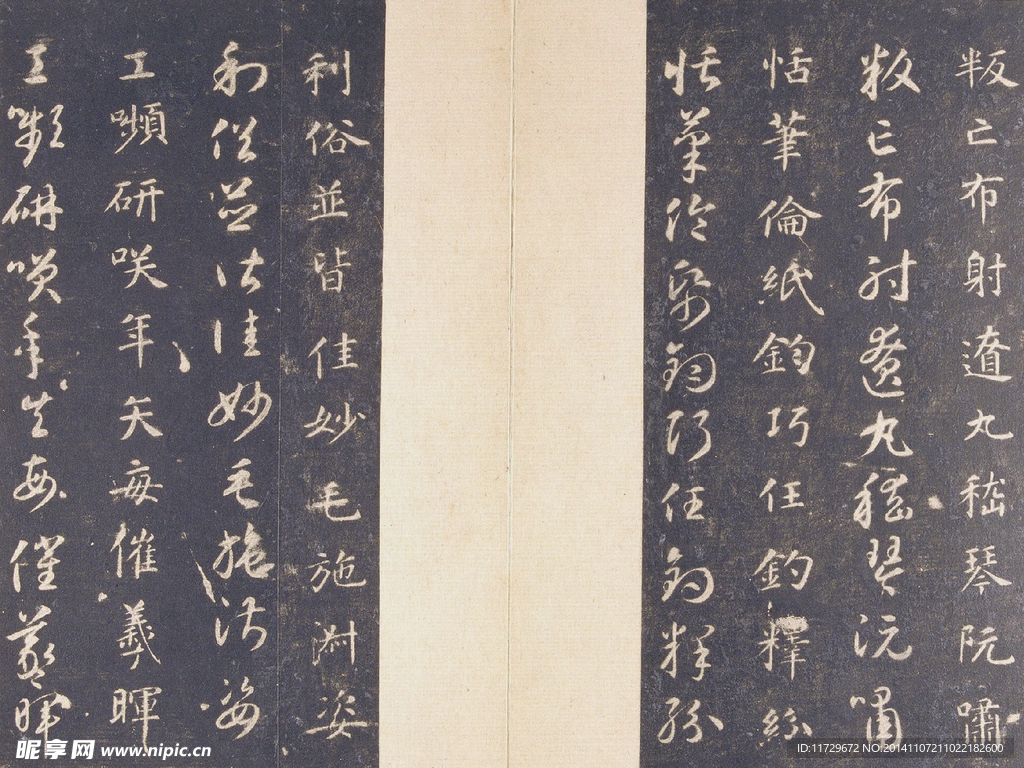 叛亡布射遼丸嵇琴阮嘯
叛亡布射遼丸嵇琴阮嘯
恬筆倫紙鈞巧任釣釋紛
恬筆倫紙鈞巧任釣釋紛
利俗並皆佳妙毛施淑姿
利俗並皆佳妙毛施淑姿
工嚬研咲年矢每催羲暉
工嚬研咲年矢每催羲暉
昵享网 www.nipic.cn
ID:11729672 NO.20141107211022182600